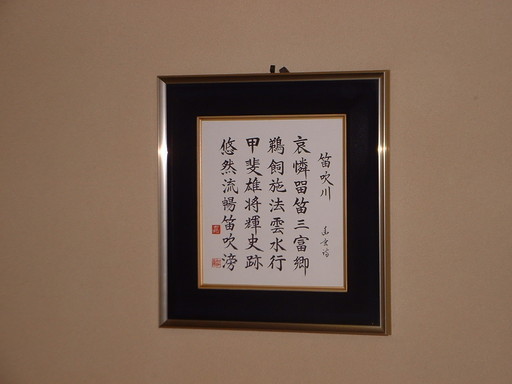 笛吹川
哀憐留笛三富郷
鵜飼施法雲水行
甲斐雄将輝史跡
悠然流暢笛吹滂